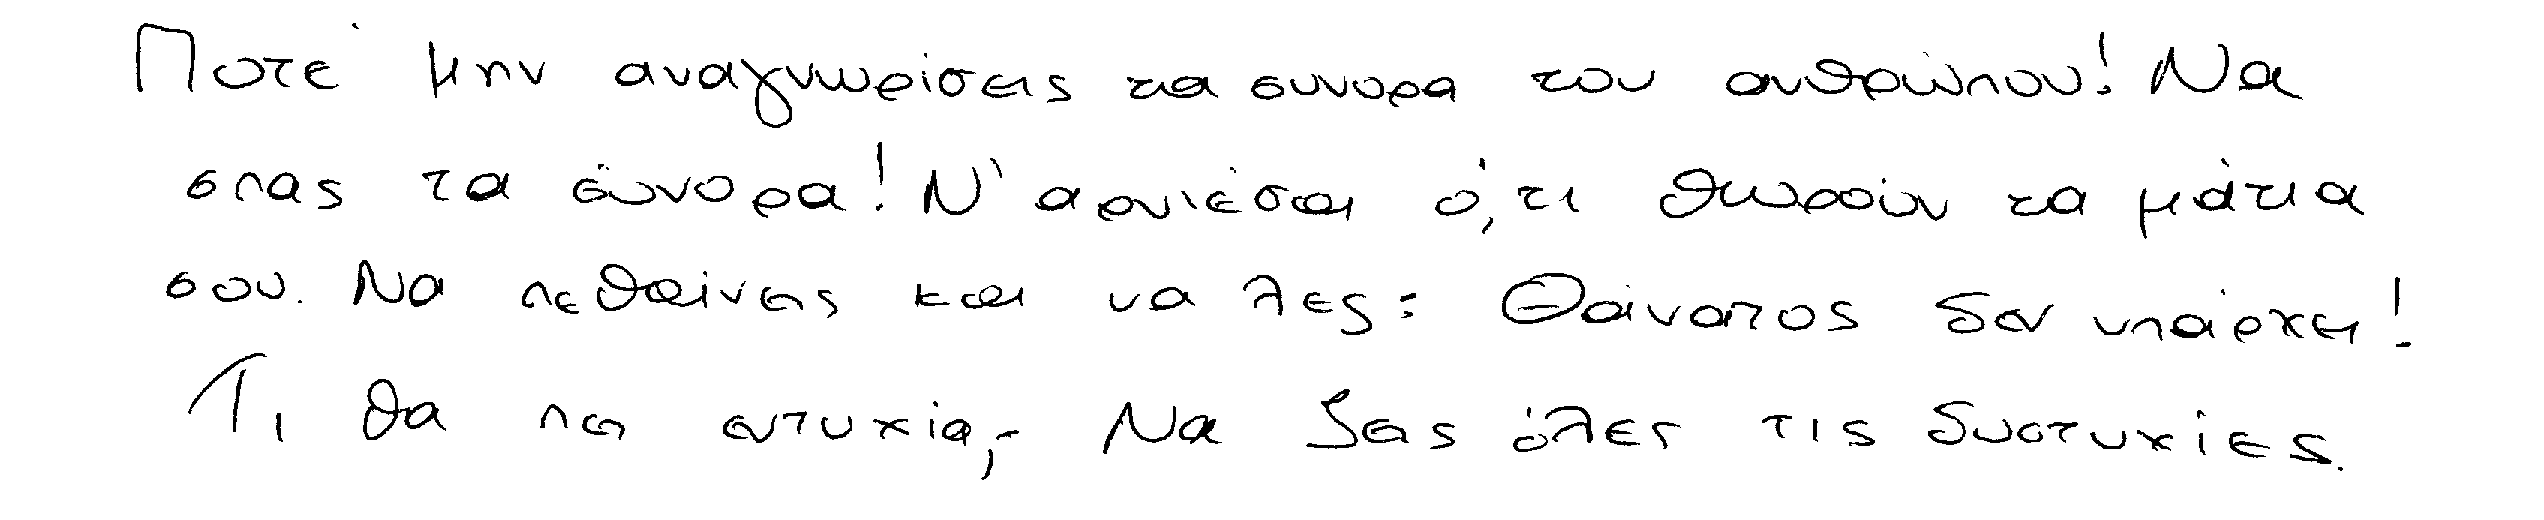 Ποτέ μην αναγνωρίσεις τα συνορα του ανθρώπου! Να
σπας τα σύνορα! Ν' αρνιέσαι ό,τι θωρούν τα μάτια
σου. Να πεθαίνεις και να λες: Θάνατος δεν υπάρχει!
Τι θα πει ευτυχία; Να ζεις όλες τις δυστυχίες.